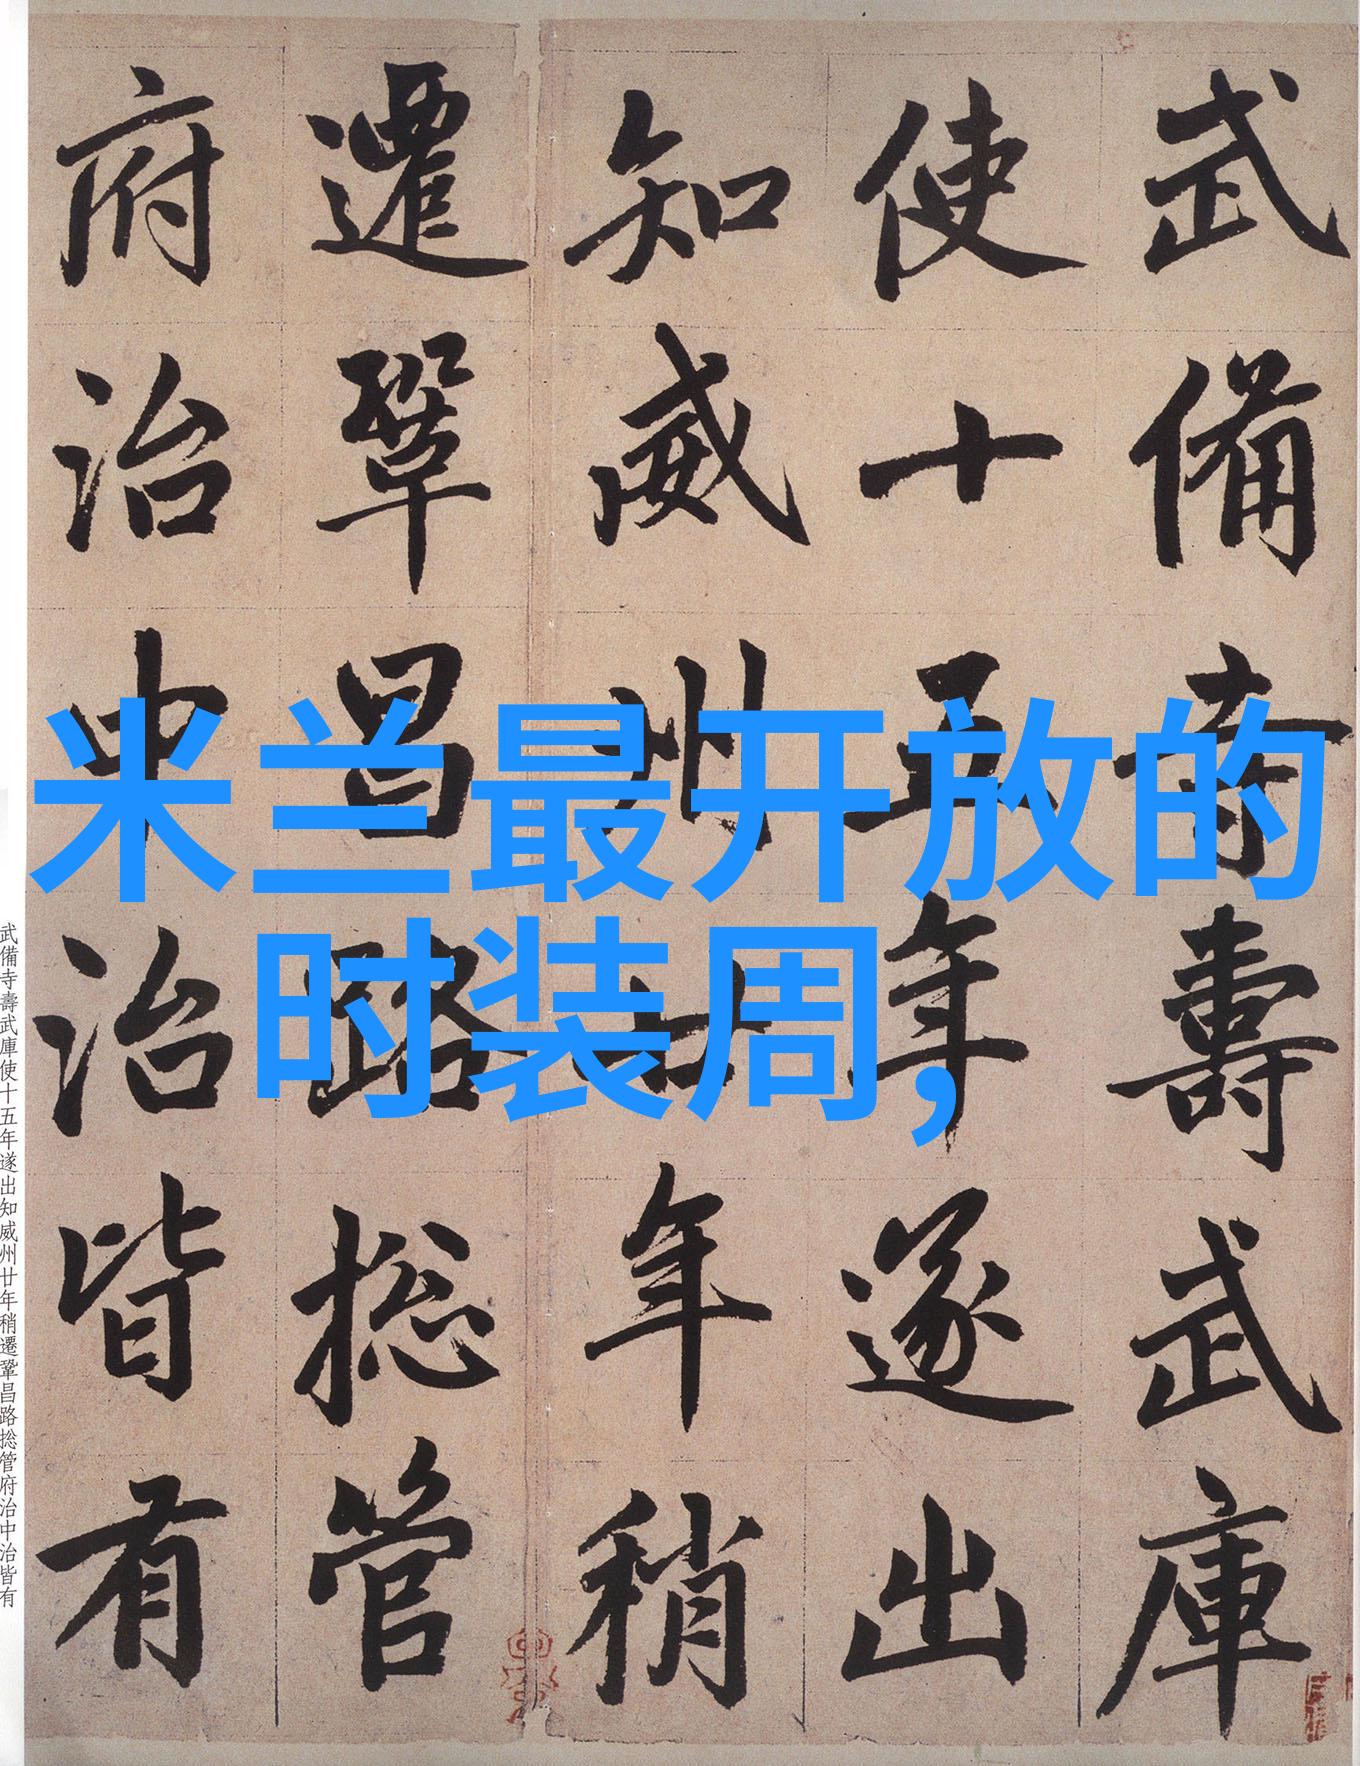 武備寺壽武庫
使十五年遂出
知威州廿年稍
遷鞏昌路揔管
府治中治皆有
米兰最开放的
时装周,
武備寺壽武庫使十五年遂出知威州廿年稍遷鞏昌路揔管府治中治皆有